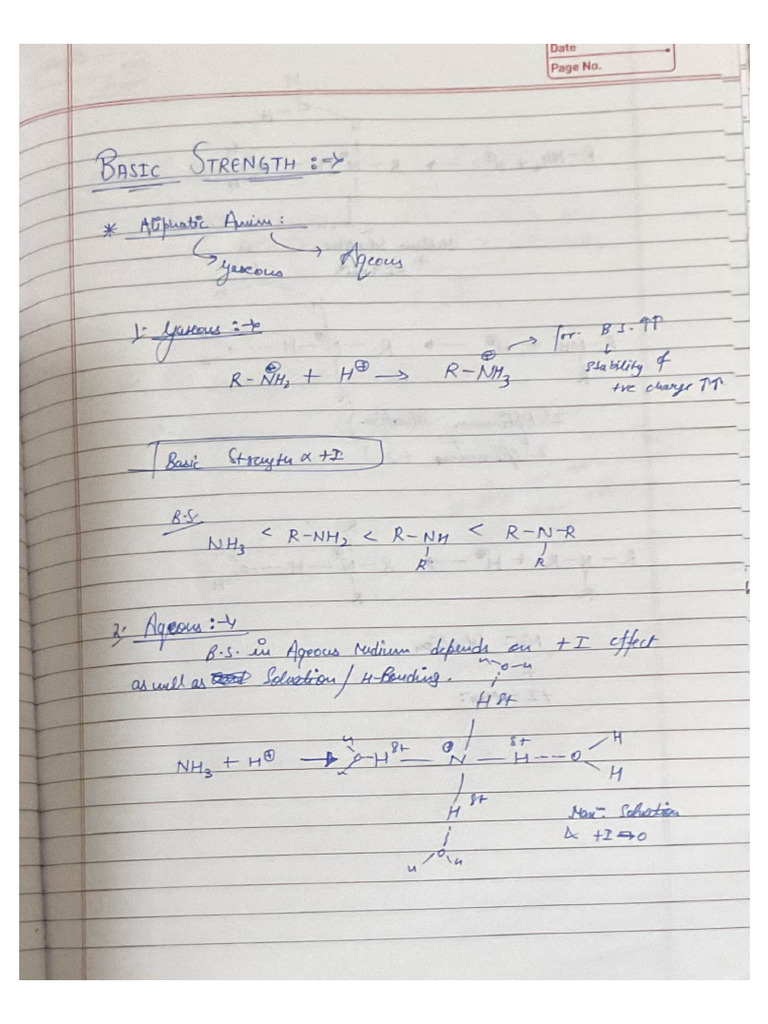 Date
Page No.
BASIC STRENGTH :→
* Aliphatic Amine :
Gaseous Aqeous
1:- Gaseous :→
R-NH₂ + H⊕ → R-NH₃ → for B.S. ↑↑
⊕ ↓
stability of
+ve charge ↑↑
Basic Strength ∝ +I
B.S.
NH₃ < R-NH₂ < R-NH < R-N-R
R R
2:- Aqeous :→
B.S. in Aqeous Medium depends on +I effect
as well as Solvation / H-Bonding.
H-O-H
H δ+
NH₃ + H⊕ → H O-H δ+ — N⊕ — H δ+ --- O H
H H
H δ+
Max- Solvation
& +I → 0
H O H